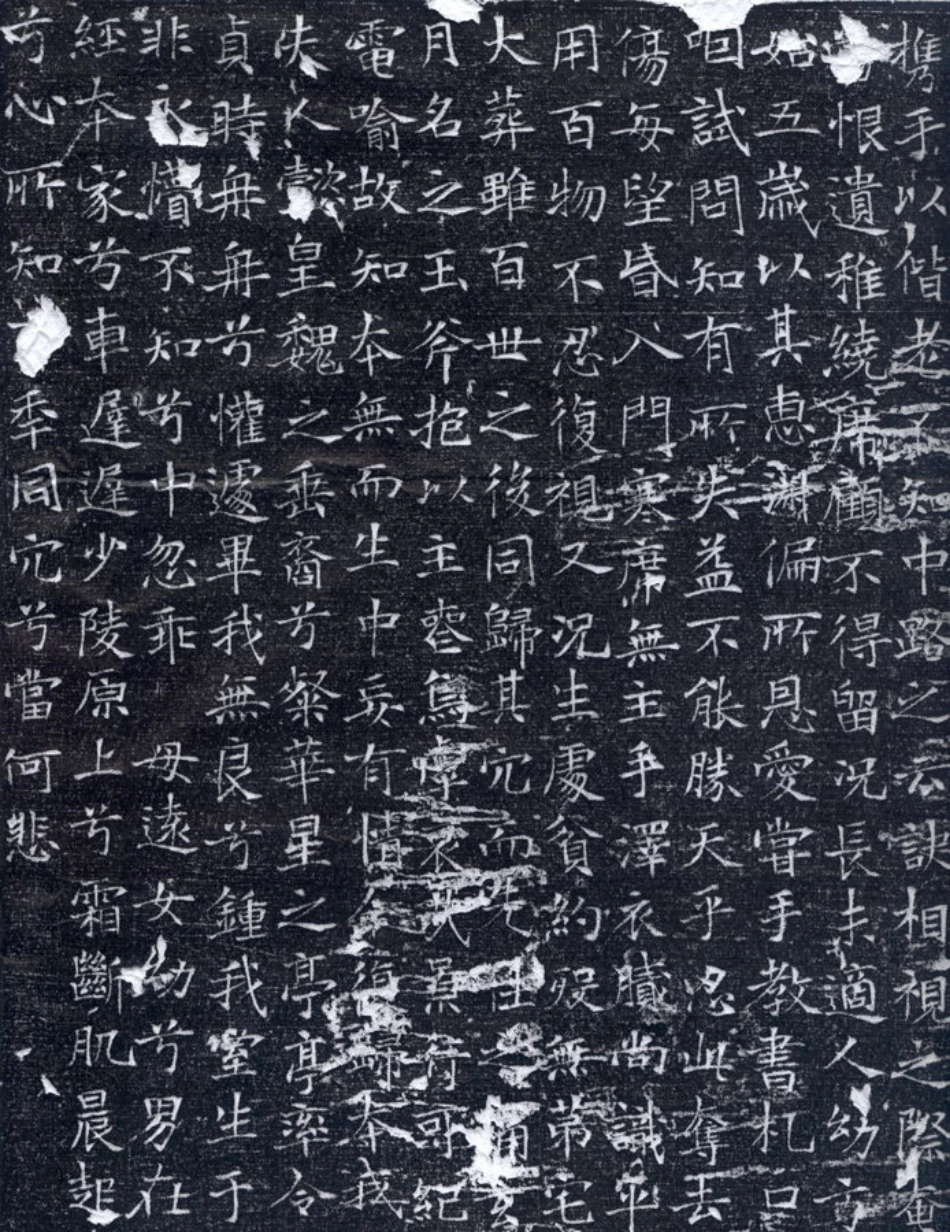 携手以偕老不知中路之云訣相視之際奄
恨遺稚繞席顧不得留況長未適人幼方
始五歲以其惠淑偏所恩愛嘗手教書札口
占試問知有所失益不能勝天乎忍此奪去
傷每望昏入門寒席無主手澤衣膩尚識平
用百物不忍復視又況生處貧約歿無第宅
大葬雖百世之後同歸其穴而先往之
月名之玉斧抱以主喪焉嗚哀哉景行可紀
電喻故知本無而生中妄有情今復歸本我
夫人懿皇魏之垂裔兮粲華星之亭亭率令
貞時冉冉兮懽遽畢我無良兮鍾我室生于
非久懵不知兮中忽乖 母遠女幼兮男在
經本家兮車遲遲少陵原上兮霜斷肌晨起
兮心所知百年同穴兮當何悲